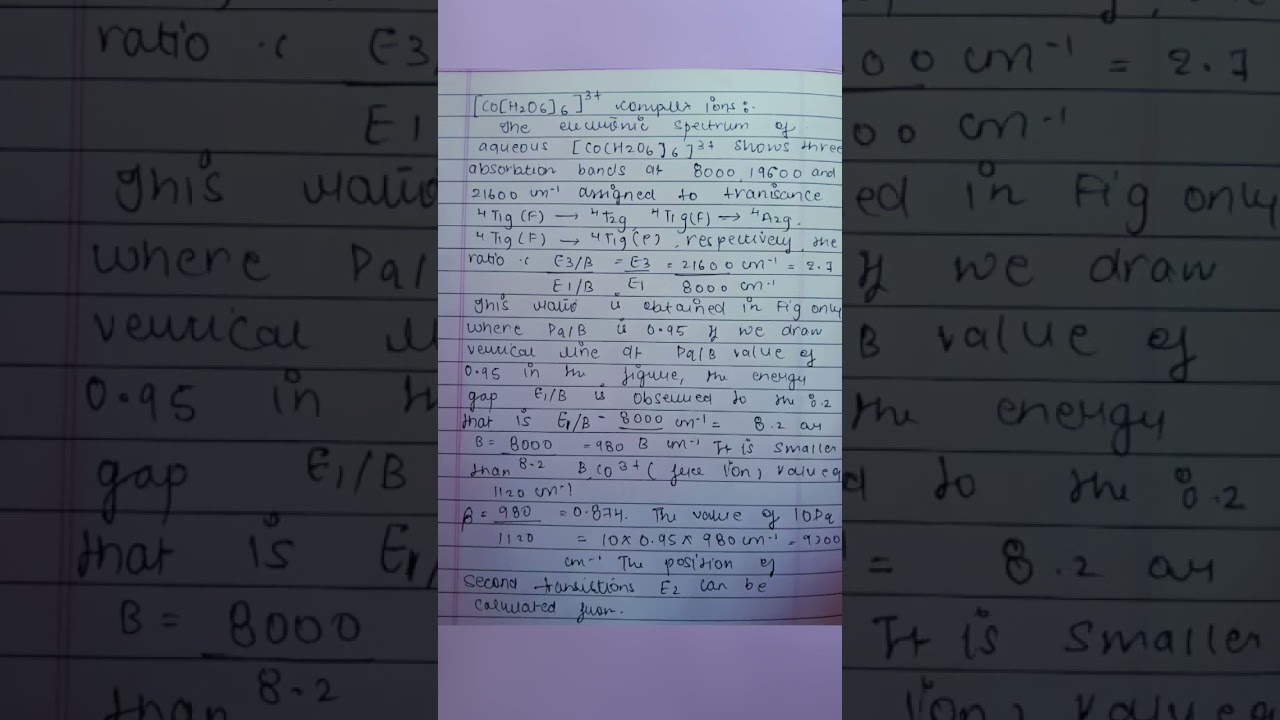 [CO[H2O6]6]3+ complex ions:-
The electronic spectrum of
aqueous [CO(H2O6]6]3+ shows three
absorbation bands at 8000, 19600 and
21600 cm-1 assigned to
4T1g(F) → 4T2g, 4T1g(F) → 4A2g.
4T1g(F) → 4T1g(P), respectively, the
ratio :( E3/B = E3 = 21600 cm-1 = 2.7
E1/B E1 8000 cm-1
This ratio is obtained in Fig only
where Dq/B is 0.95 If we draw
vertical line at Dq/B value of
0.95 in the figure, the energy
gap E1/B is observed to the 8.2
that is E1/B = 8000 cm-1 = 8.2 or
B = 8000 = 980 B cm-1 It is smaller
than 8.2 B, CO3+ ( free ion) value
1120 cm-1
β = 980 = 0.874. The value of 10Dq
1120 = 10 x 0.95 x 980 cm-1 = 9300
cm-1 The position of
second transictions E2 can be
calculated from.